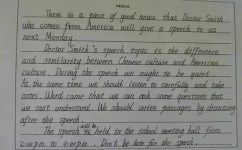 There is a piece of good news that Doctor Smith
who comes from America will give a speech to us
next Monday.
Doctor Smith's speech topic is the difference
and similarity between Chinese culture and American
culture. During the speech we ought to be quiet.
At the same time we should listen to carefully and take
notes. Word came that we can ask some questions that
we can't understand. We should write passages by discussing
after the speech.
The speech will be held in the school meeting hall from
2:00 p.m to 4:00 p.m. Don't be late for the speech.